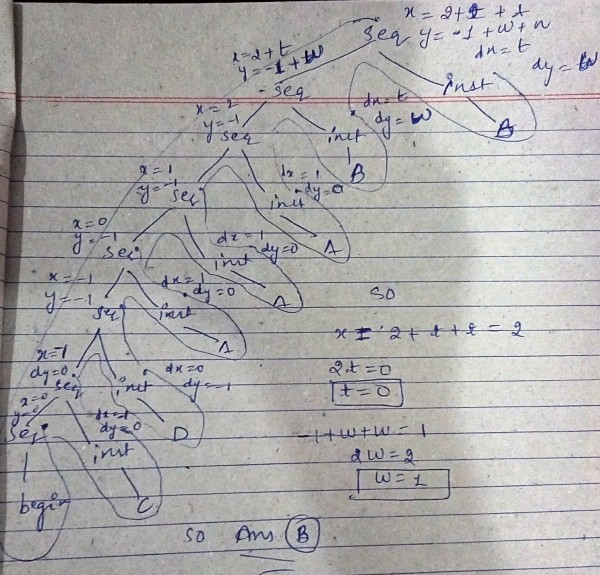 x = 2+t + t
Seq y = -1 + w + w
dx = t
dy = w
x = 2+t
y = -1+w
Seq
inst
B
x = 2
y = -1
Seq
dx = t
dy = w
inst
B
x = 1
y = -1
Seq
dx = 1
dy = 0
inst
A
x = 0
y = -1
Seq
dx = 1
dy = 0
inst
A
x = -1
y = -1
Seq
dx = 1
dy = 0
inst
A
x = -1
dy = 0
Seq
dx = 0
dy = -1
inst
D
x = 0
y = 0
Seq
dx = -1
dy = 0
inst
C
begin
so
x = 2 + t + t = 2
2t = 0
t = 0
-1 + w + w = 1
2w = 2
w = 1
so Ans B